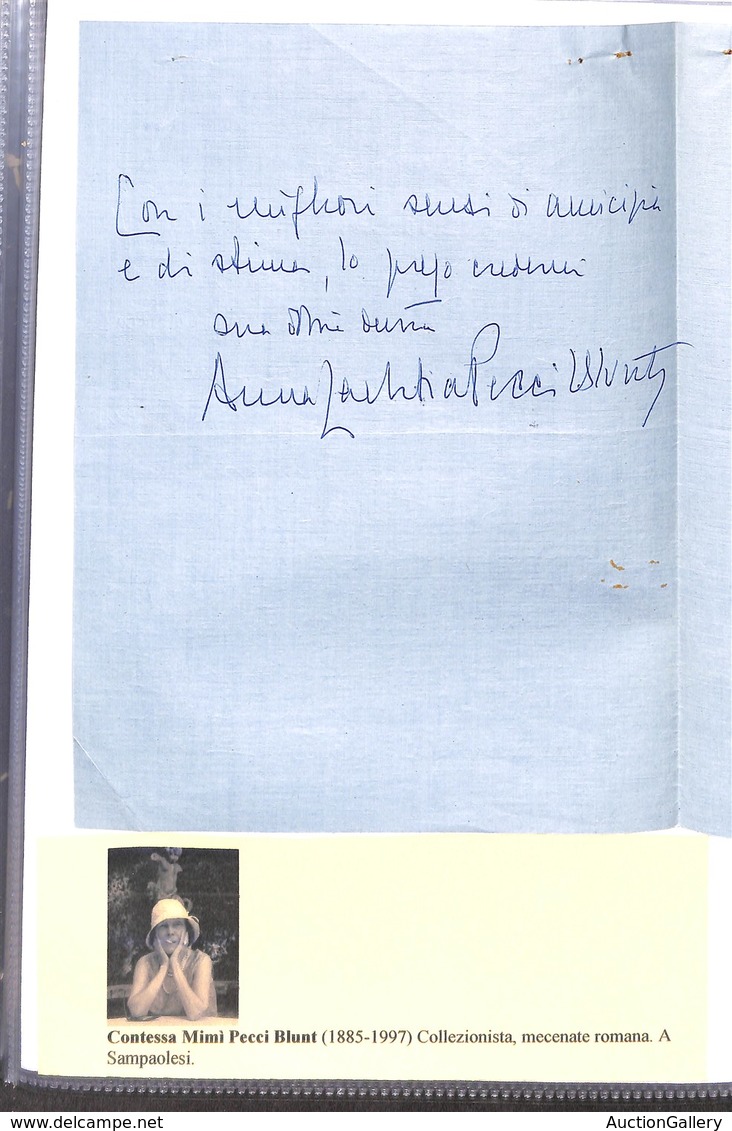 Con i migliori sensi di amicizia
e di stima, la prego credermi
sua
Anna Laetitia Pecci Blunt
Contessa Mimì Pecci Blunt (1885-1997) Collezionista, mecenate romana. A
Sampaolesi.
www.delcampe.net
AuctionGallery